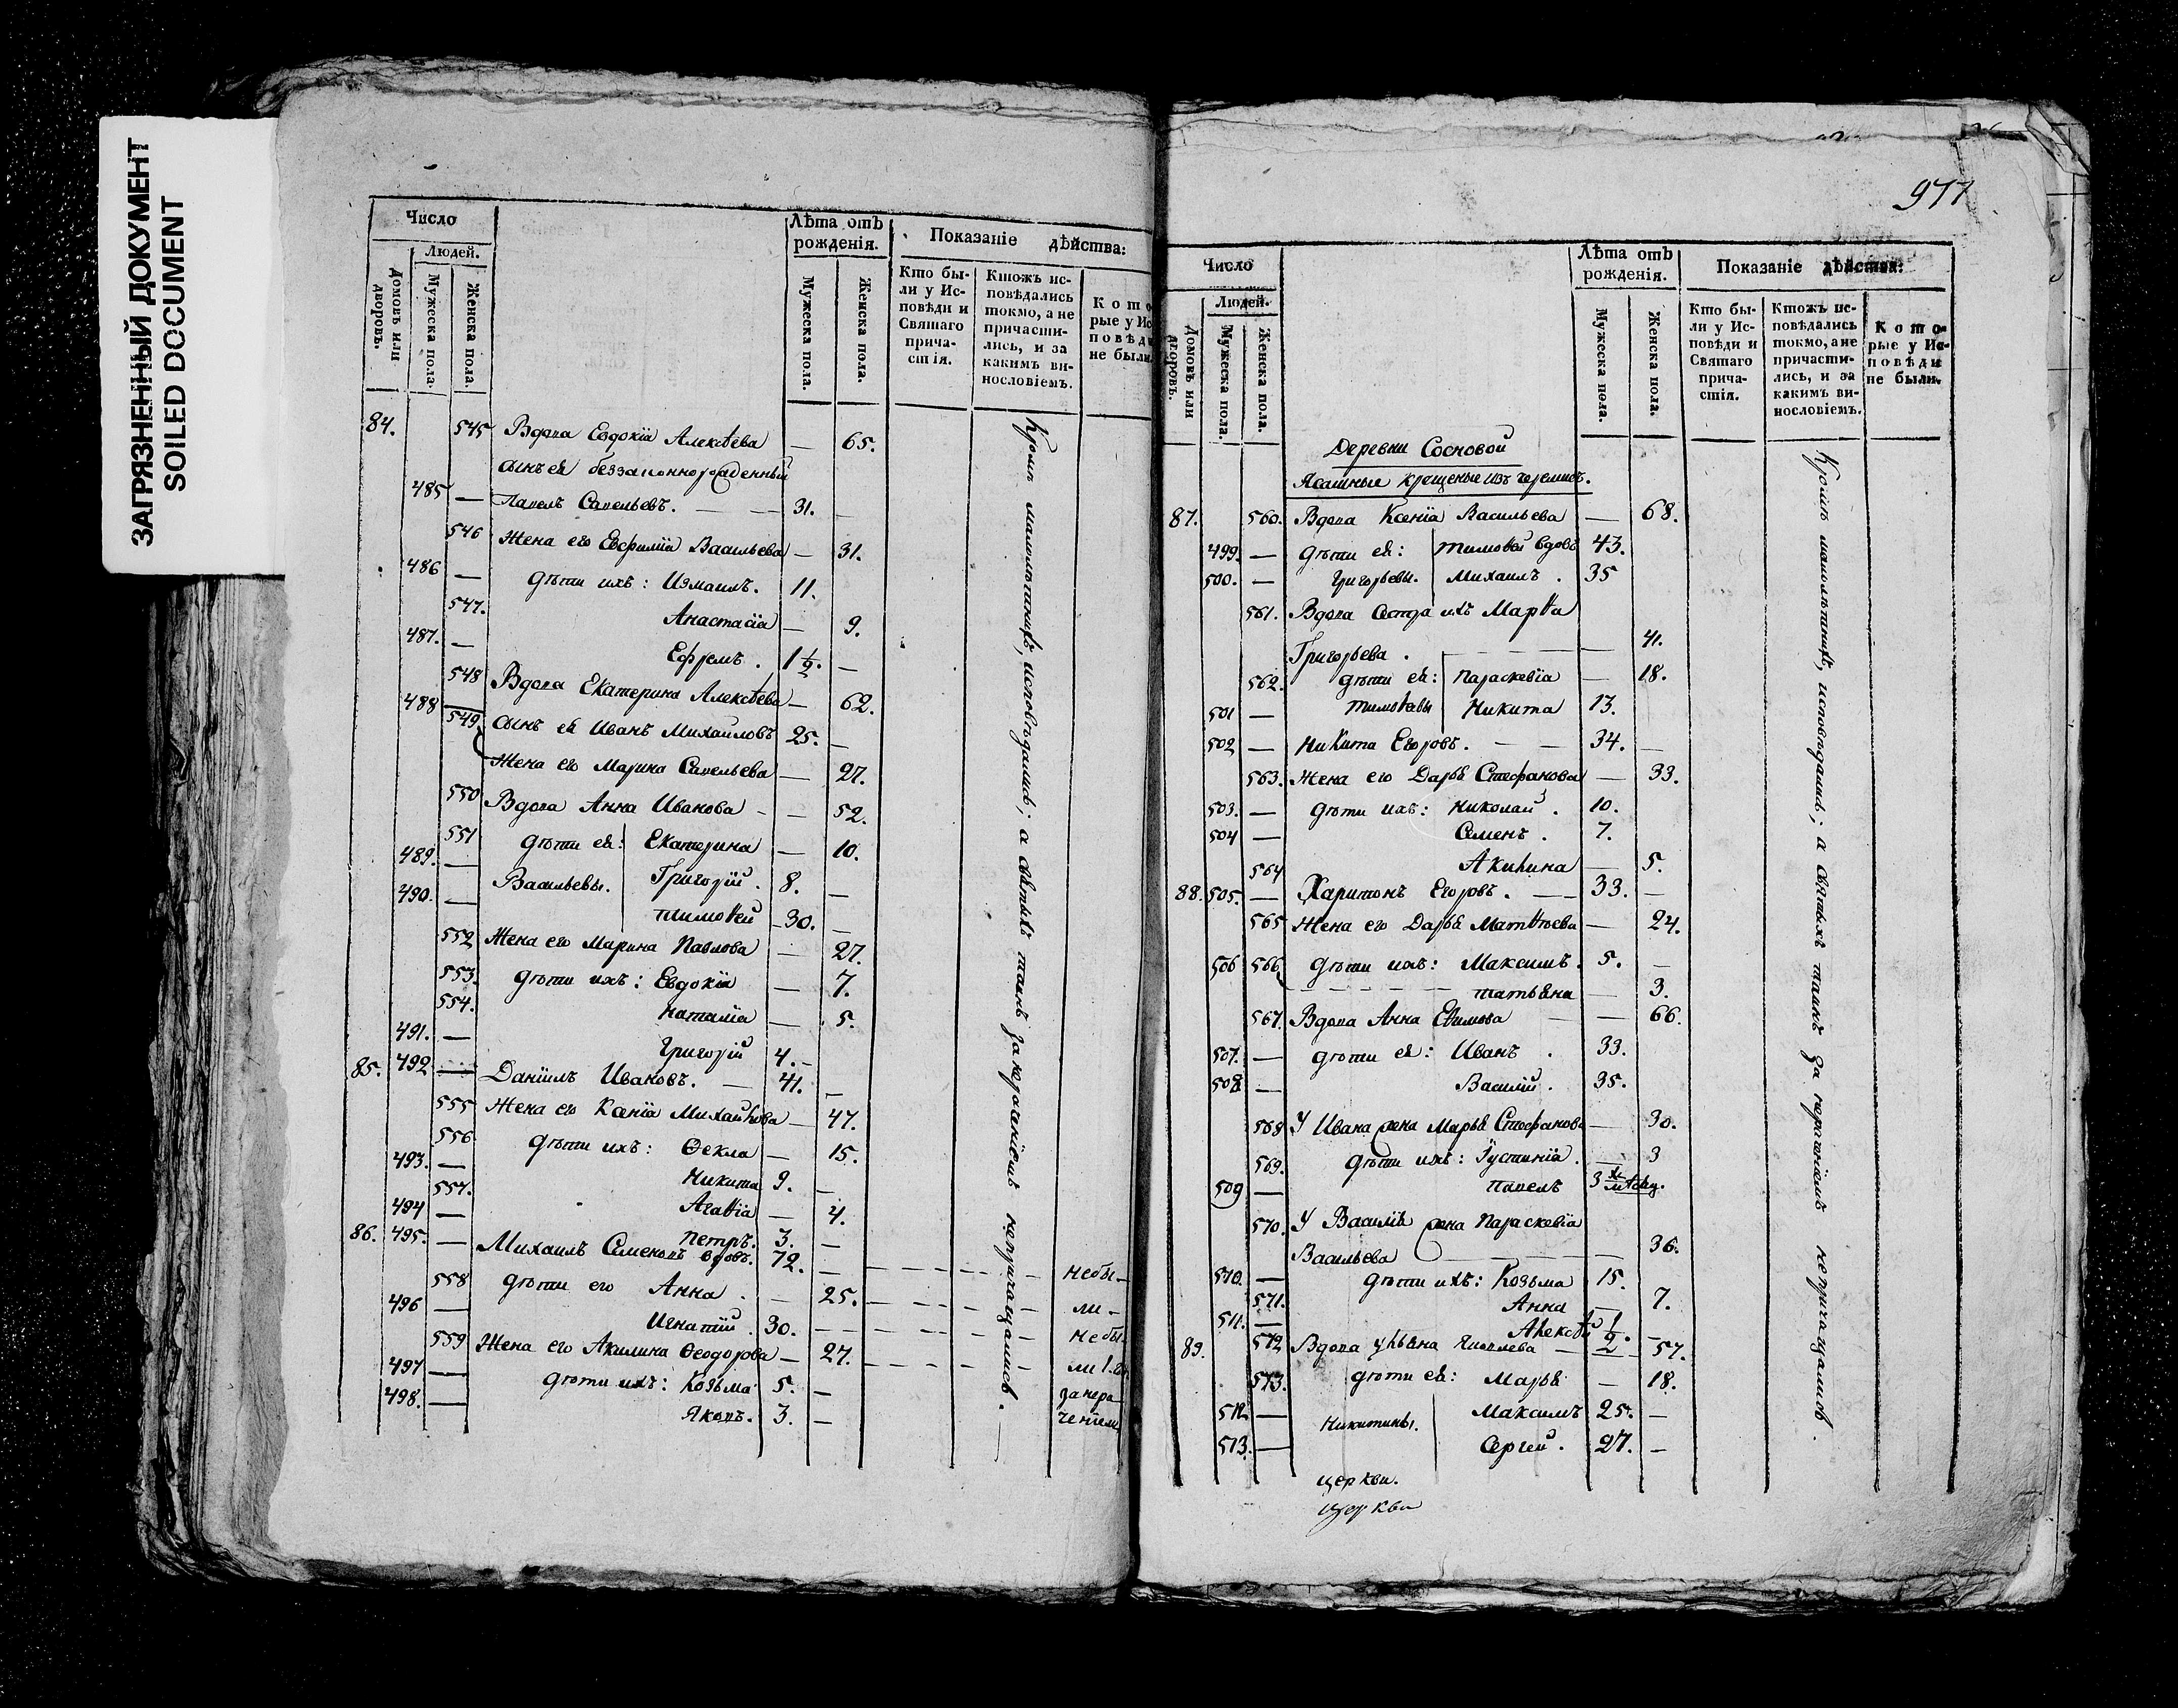 ЗАГРЯЗНЕННЫЙ ДОКУМЕНТ
SOILED DOCUMENT
Число
Людей.
Домовъ или дворовъ.
Мужеска пола.
Женска пола.
Лѣта отъ рожденія.
Мужеска пола.
Женска пола.
Показаніе дѣйства:
Кто были у Исповѣди и Святаго причастія.
Ктожъ исповѣдались токмо, а не причастились, и за какимъ винословіемъ.
84. 545 Вдова Евдокіа Алексѣева — 65.
сынъ ея беззаконнорожденный
485 — Павелъ Савельевъ. — 31. —
546 Жена его Евфиміа Васильева — 31.
486 — дѣти ихъ: Измаилъ. 11.
547. Анастасіа — 9.
487. — Ефремъ. 1 1/2. —
548 Вдова Екатерина Алексѣева — 62.
488 — сынъ ея Иванъ Михайловъ 25. —
549. Жена его Марина Савельева — 27.
550 Вдова Анна Иванова — 52.
551 дѣти ея: Екатерина — 10.
489. — Васильевы. Григорій. 8. —
490. — Тимоѳей 30. —
552 Жена его Марина Павлова — 27.
553. дѣти ихъ: Евдокіа — 7.
554. Наталіа — 5.
491. — Григорій 4. —
85. 492 — Даніилъ Ивановъ. — 41. —
555 Жена его Ксеніа Михайлова — 47.
556 дѣти ихъ: Ѳекла — 15.
493. — Никита 9. —
557. Агаѳіа — 4.
494 — Петръ. 3. —
86. 495. — Михаилъ Семеновъ вдовъ. 72. — небы-
558 дѣти его Анна. — 25. ли-
496 — Игнатій. 30. — небы-
559 Жена его Акилина Ѳеодорова — 27. ли
497 — дѣти ихъ: Козьма 5. —
498. — Яковъ. 3. —
Кромѣ малолѣтнихъ, исповѣдались; а святыхъ таинъ за нераченіемъ непричащались.
977
Число
Людей.
Домовъ или дворовъ.
Мужеска пола.
Женска пола.
Лѣта отъ рожденія.
Мужеска пола.
Женска пола.
Показаніе дѣйства:
Кто были у Исповѣди и Святаго причастія.
Ктожъ исповѣдались токмо, а не причастились, и за какимъ винословіемъ.
Которые у Исповѣди не были.
Деревни Сосновой
Ясашные крещеные изъ черемисъ.
87. 560. Вдова Ксеніа Васильева — 68.
499. — дѣти ея: Тимоѳей вдовъ 43.
500. — Григорьевы. Михаилъ. 35
561. Вдова сестра ихъ Марѳа
Григорьева. — 41.
562. дѣти ея: Параскевіа — 18.
501 — Тимоѳеевы Никита 13.
502 — Никита Егоровъ. — 34. —
563. Жена его Дарья Стефанова — 33.
503. — дѣти ихъ: Николай. 10.
504 — Семенъ. 7.
564 Акилина — 5.
88. 505. — Харитонъ Егоровъ. — 33. —
565 Жена его Дарья Матѳеева — 24.
506 566 дѣти ихъ: Максимъ. 5. —
Татьяна — 3.
567. Вдова Анна Еѳимова — 66.
507. — дѣти ея: Иванъ. 33.
508. — Василій. 35.
568 У Ивана жена Марья Стефанова — 30.
569. дѣти ихъ: Іустиніа. — 3
509 — Павелъ 3хъ мѣсяц.
570. У Василья жена Параскевіа
Васильева — 36.
510. — дѣти ихъ: Козьма 15.
571. Анна — 7.
511. — Алексѣй 1/2. —
89. 572 Вдова Ульяна — 57.
573. дѣти ея: Марья — 18.
512 — Никитины. Максимъ 25. —
513. — Сергей. 27. —
Кромѣ малолѣтнихъ, исповѣдались; а святыхъ таинъ за нераченіемъ непричащались.
церкви.
церкви